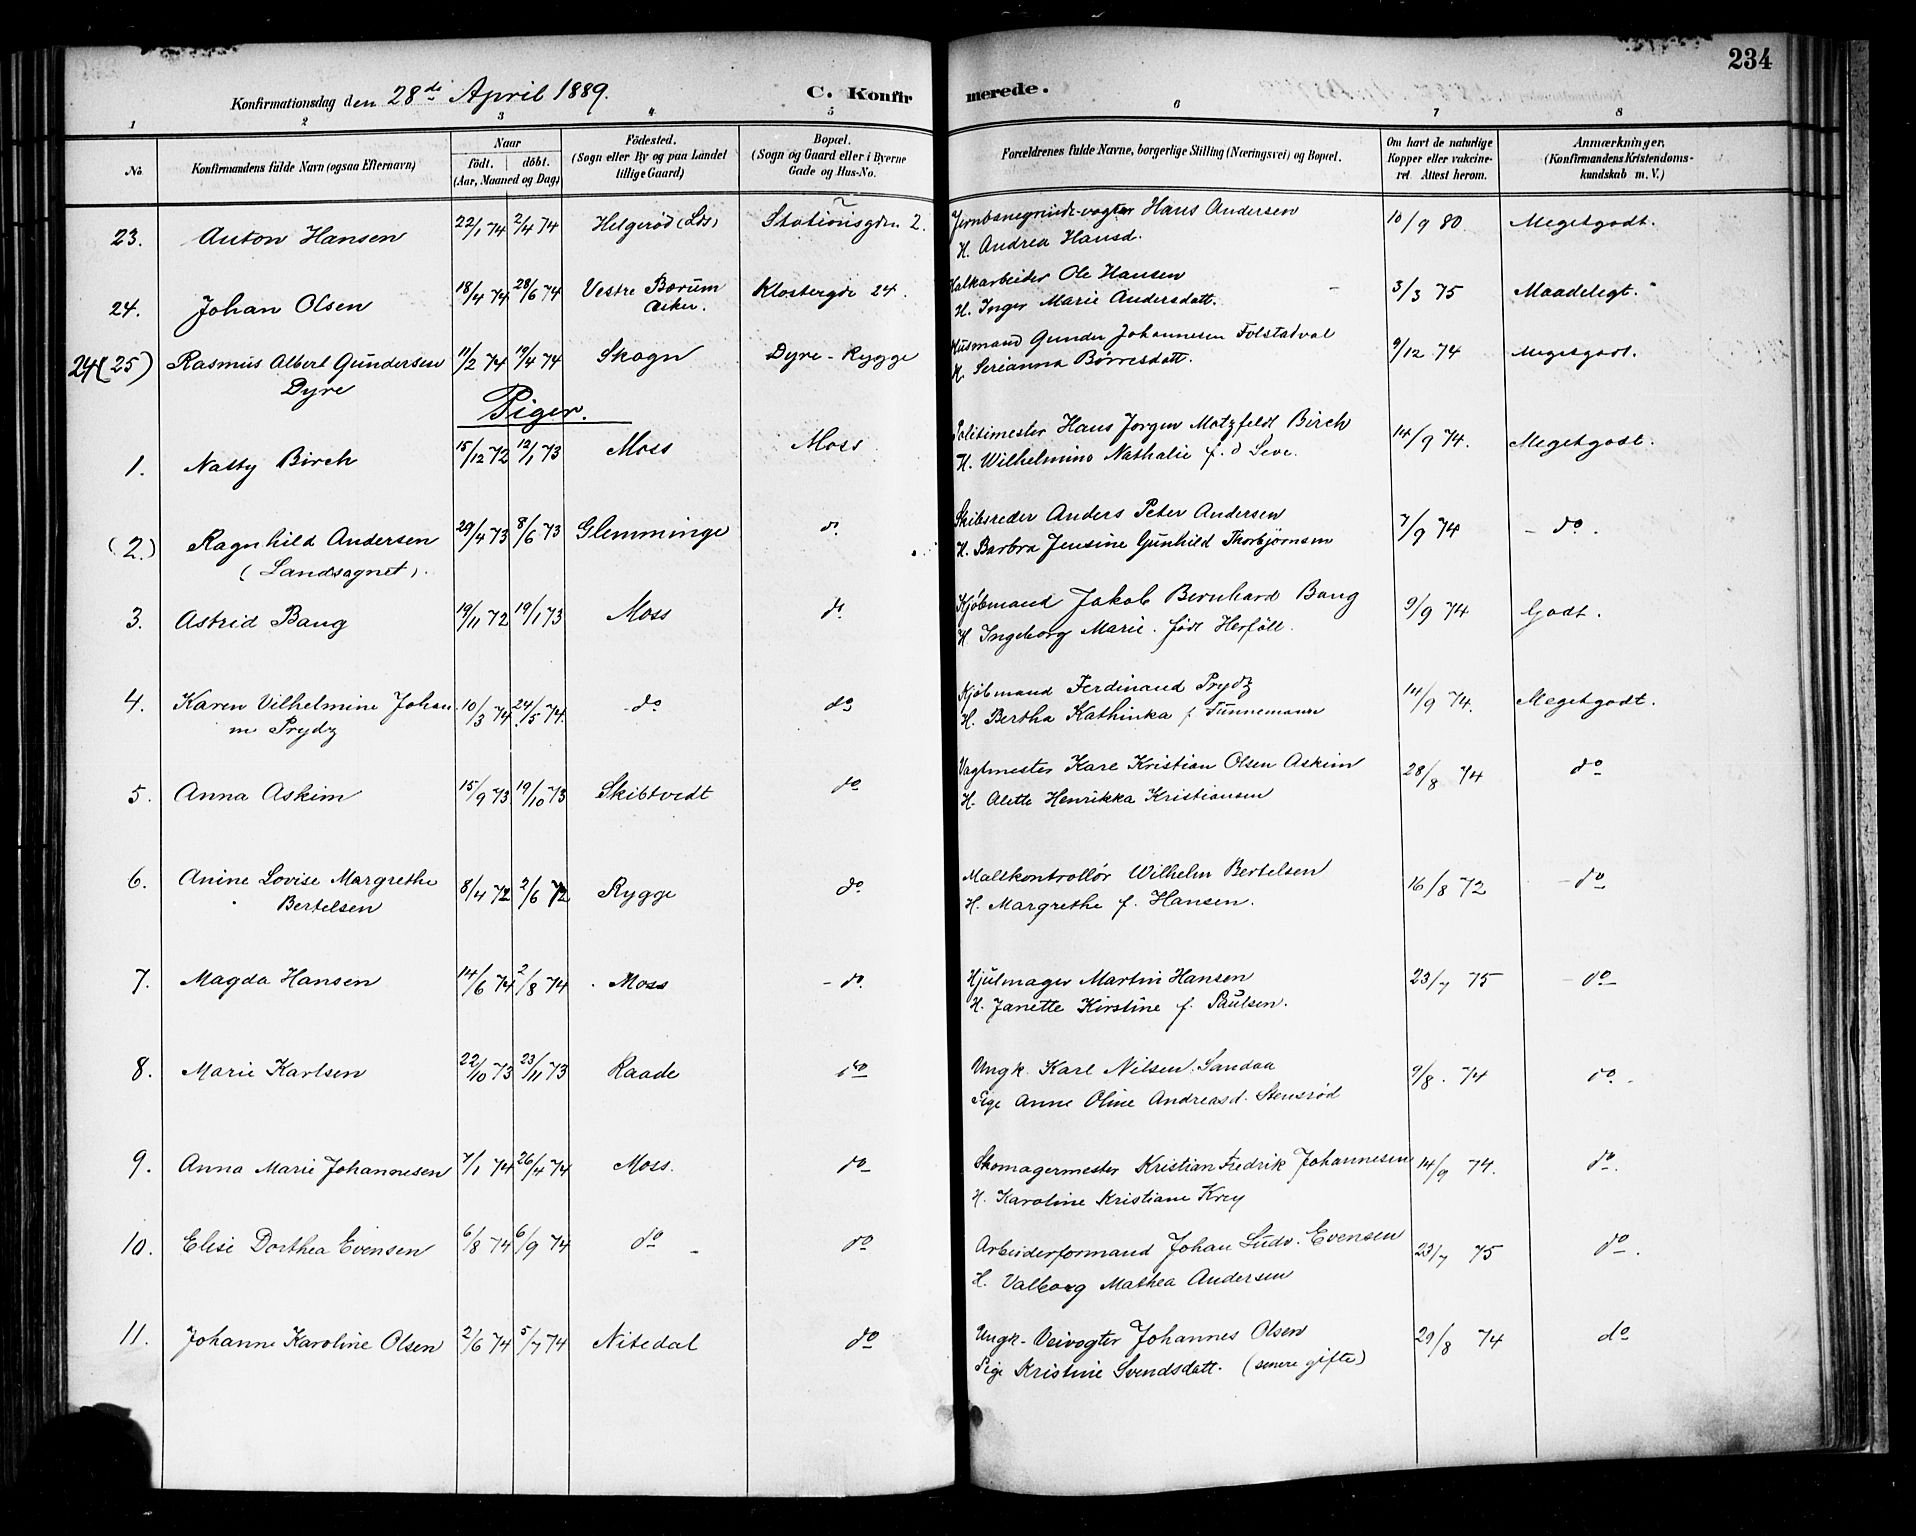 234
Konfirmationsdag den 28de April 1889. C. Konfirmerede.
1 2 3 4 5 6 7 8
No Konfirmandens fulde Navn (ogsaa Efternavn) Naar født. døbt. (Aar, Maaned og Dag) Fødested. (Sogn eller By og paa Landet tillige Gaard) Bopæl. (Sogn og Gaard eller i Byerne Gade og Hus-No. Forældrenes fulde Navne, borgerlige Stilling (Næringsvei) og Bopæl. Om havt de naturlige Kopper eller vakcineret. Attest herom. Anmærkninger, (Konfirmandens Kristendomskundskab m. V.)
23. Anton Hansen 22/1 74 2/4 74 Helgerød (Lds) Stationsgdn 2. Jernbanegrindevogter Hans Andersen 10/9 80. Megetgodt.
H. Andrea Hansd.
24. Johan Olsen 18/4 74 28/6 74 Vestre Bærum Asker. Klostergdn 24. Kalkarbeider Ole Hansen 3/3 75 Maadelegt.
H. Inger Marie Andersdatt.
24 (25) Rasmus Albert Gundersen 11/2 74 19/4 74 Skogn Dyre - Rygge Husmand Gunder Johannesen Folstadval 9/12 74 Megetgodt.
Dyre H. Serianna Børresdatt.
Piger.
1. Natty Birch 15/12 72 12/1 73 Moss Moss Politimester Hans Jørgen Motzfeldt Birch 14/9 74. Megetgodt.
H. Wilhelmine Nathalie f. d
(2.) Ragnhild Andersen 29/4 73 8/6 73 Glemminge do Skibsreder Anders Peter Andersen 7/9 74 - do.
(Landsognet). H. Barbra Jensine Gunhild Thorbjørnsen
3. Astrid Bang 19/11 72 19/1 73 Moss do Kjøbmand Jakob Bernhard Bang 9/9 74 Godt.
H. Ingeborg Marie. født Herføll.
4. Karen Vilhelmine Johan 10/3 74 24/5 74. do do Kjøbmand Ferdinand Prydz 14/9 74. Megetgodt.
ne Prydz H. Bertha Kathinka f Tünnemann
5. Anna Askim 15/9 73 19/10 73 Skibtvedt do Vagtmester Karl Kristian Olsen Askim 28/8 74 do
H. Alette Henrikka Kristiansen
6. Anine Lovise Margrethe 8/4 72 2/6 72 Rygge do Maltkontrollør Wilhelm Bertelsen 16/8 72 - do
Bertelsen H. Margrethe f. Hansen.
7. Magda Hansen 14/6 74 2/8 74 Moss - do. Hjulmager Martin Hansen 23/7 75 - do -
H. Janette Kirstine f. Paulsen.
8. Marie Karlsen 22/10 73 23/11 73 Raade do Ungk. Karl Nilsen Sandaa 9/8. 74 do.
Pige Anne Oline Andreasd. Stensrød
9. Anna Marie Johannesen 7/1 74 26/4 74 Moss. do Skomagermester Kristian Fredrik Johannesen 14/9 74. do.
H. Karoline Kristiane Krey
10. Elise Dorthea Evensen 6/8 74 6/9 74 do - do Arbeiderformand Johan Ludv. Evensen 23/7 75 do.
H. Valborg Mathea Andersen
11. Johanne Karoline Olsen 2/6 74 5/7 74 Nitedal do Ungk. Veivogter Johannes Olsen 29/8 74 do
Pige Kristine Svendsdatt. (senere gifte)